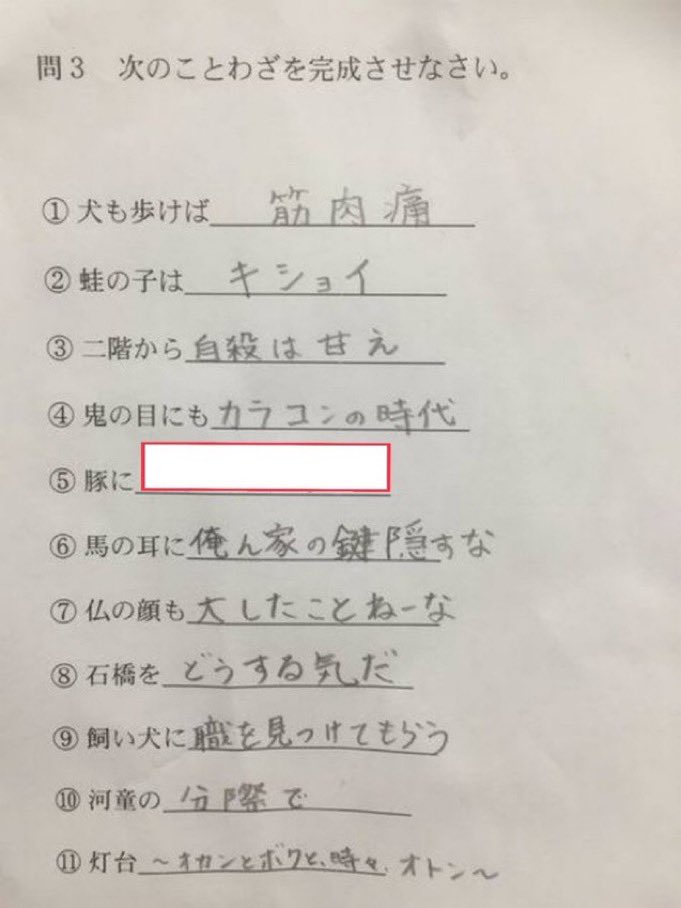 問3 次のことわざを完成させなさい。
① 犬も歩けば 筋肉痛
② 蛙の子は キショイ
③ 二階から 自殺は甘え
④ 鬼の目にも カラコンの時代
⑤ 豚に
⑥ 馬の耳に 俺ん家の鍵隠すな
⑦ 仏の顔も 大したことねーな
⑧ 石橋を どうする気だ
⑨ 飼い犬に 職を見つけてもらう
⑩ 河童の 分際で
⑪ 灯台 ～オカンとボクと、時々、オトン～